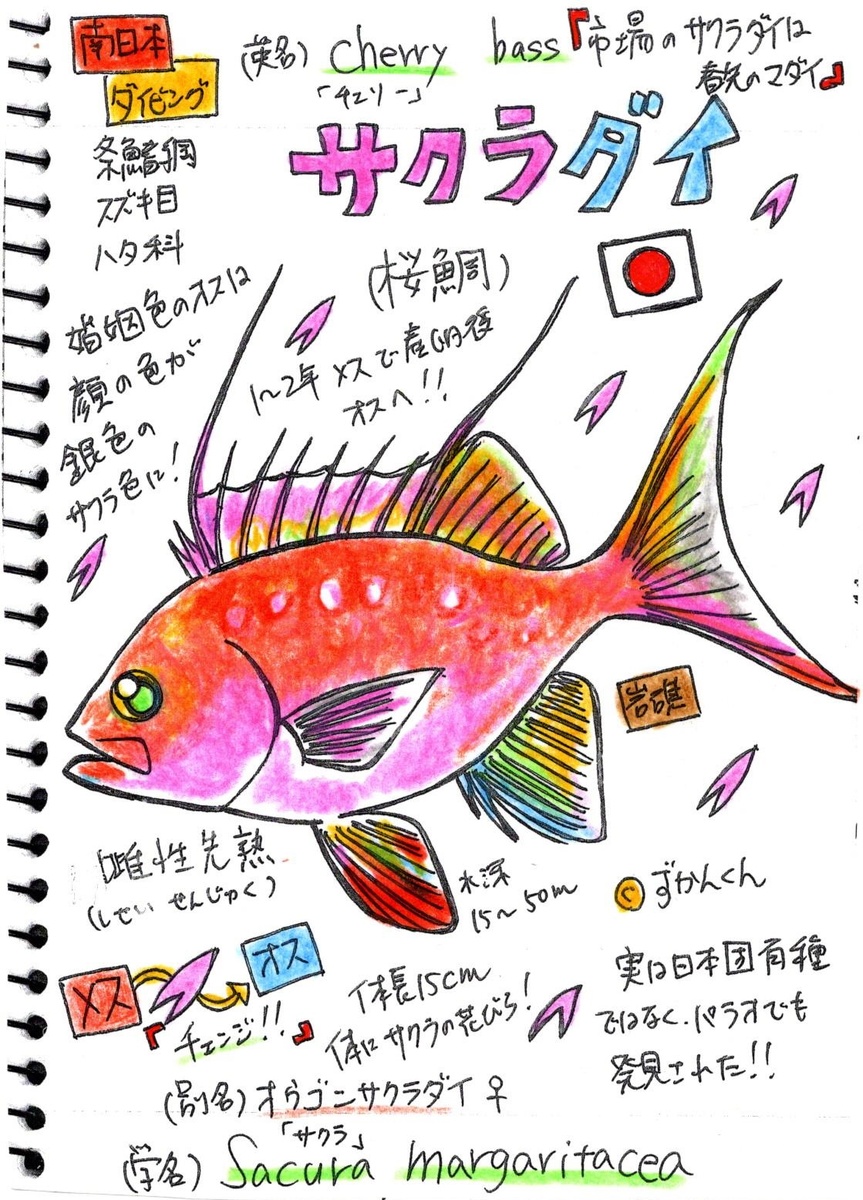 南日本
ダイビング
(英名) cherry bass
「チェリー」
『市場のサクラダイは
春先のマダイ』
サクラダイ
条鰭綱
スズキ目
ハタ科
(桜鯛)
婚姻色のオスは
顔の色が
銀色の
サクラ色に!
1~2年メスで産卵後
オスへ!!
岩礁
雌性先熟
(しせい せんじゅく)
水深
15~50m
©ずかんくん
メス
オス
『チェンジ!!』
体長15cm
体にサクラの花びら!
実は日本固有種
ではなく、パラオでも
発見された!!
(別名) オウゴンサクラダイ♀
「サクラ」
(学名) Sacura margaritacea